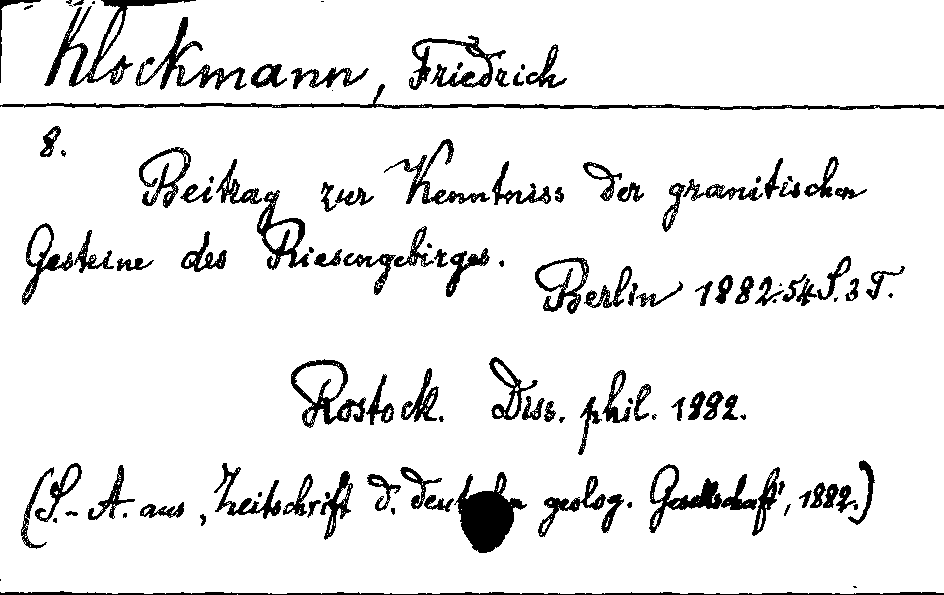 Klockmann, Friedrich
8.
Beitrag zur Kenntniss der granitischen
Gesteine des Riesengebirges.
Berlin 1882. 54 S. 3 T.
Rostock. Diss. phil. 1882.
(S.-A. aus „Zeitschrift d. deutschen geolog. Gesellschaft", 1882.)